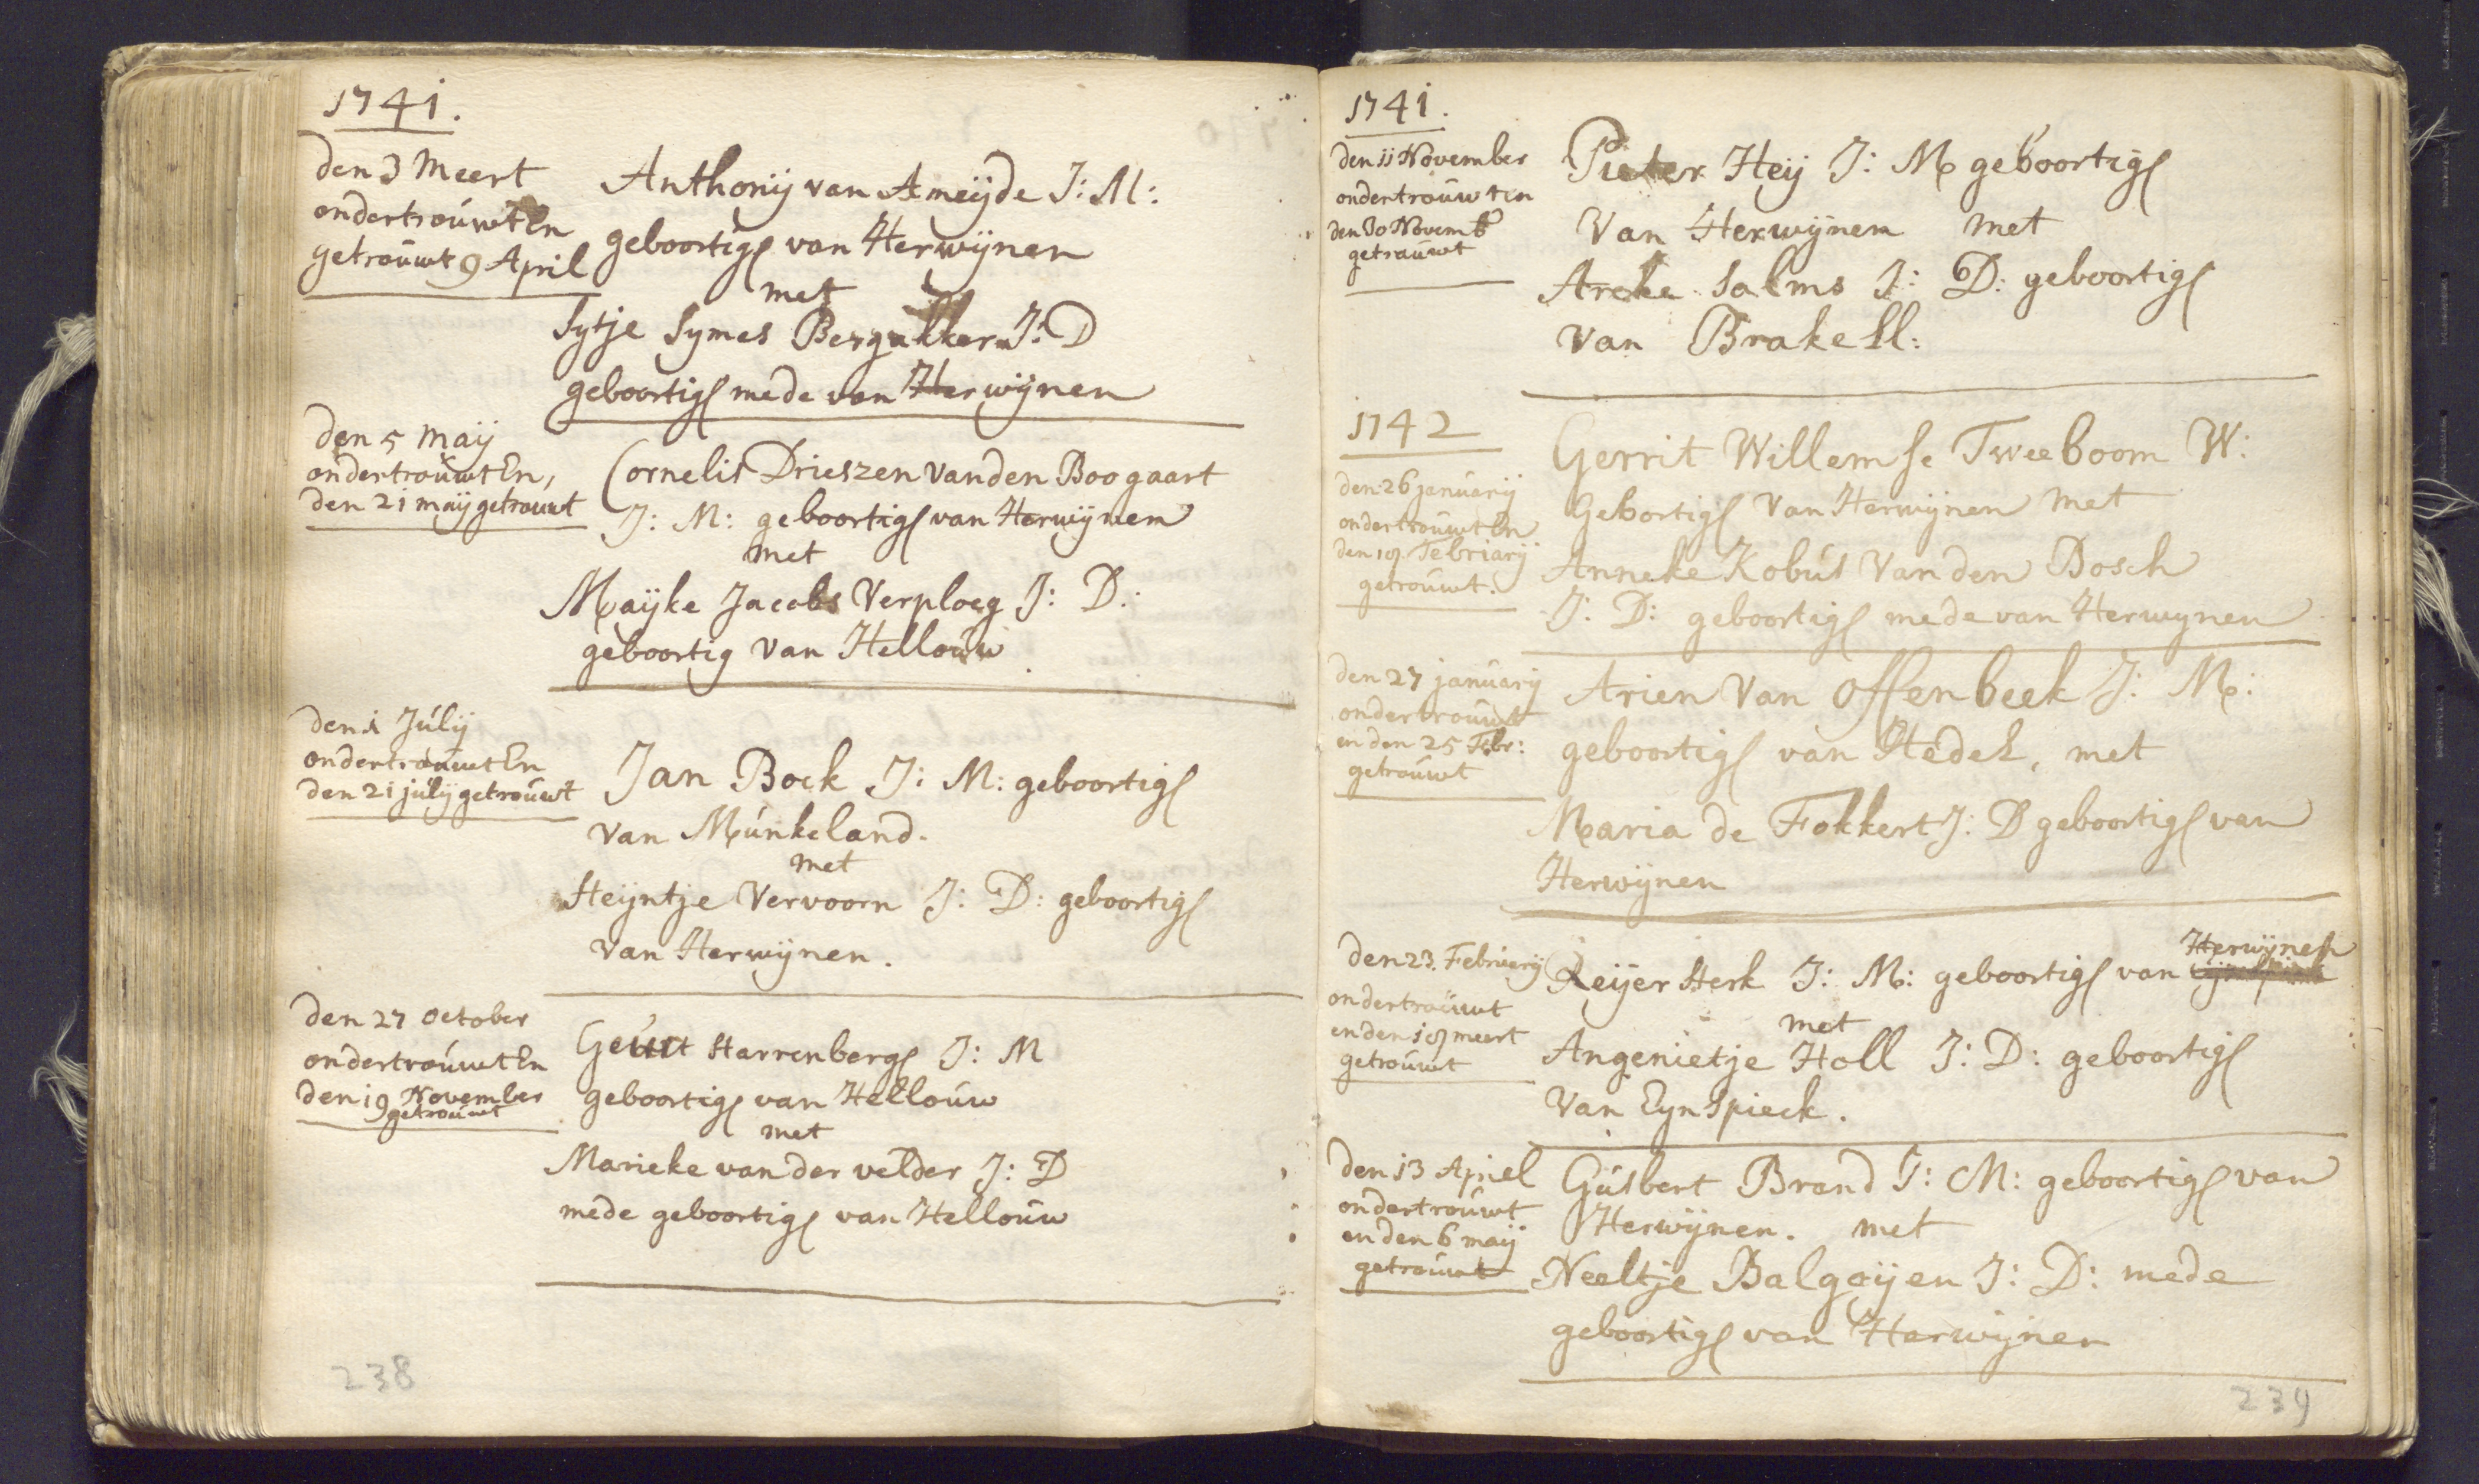 1741.
den 3 Meert
ondertrouwt En
getrouwt 9 April
Anthonij van Ameijde J: M:
geboortigh van Herwijnen
met
Sytje Symes Bergakker J: D
geboortigh mede van Herwijnen
den 5 Maij
ondertrouwt En,
den 21 maij getrouwt
Cornelis Drieszen vanden Boogaart
J: M: geboortigh van Herwijnen
met
Maijke Jacobs Verploeg J: D:
geboortig van Hellouw
den 1 Julij
ondertrouwt En
den 21 julij getrouwt
Jan Bock J: M: geboortigh
van Munkeland.
met
Heijntje Vervoorn J: D: geboortigh
van Herwijnen.
den 27 october
ondertrouwt En
den 19 November
getrouwt
Geurt Starrenbergh J: M
geboortigh van Hellouw
met
Marieke van der velder J: D
mede geboortigh van Hellouw
238
1741.
den 11 November
ondertrouwt en
den 30 Novembr
getrouwt
Pieter Heij J: M geboortigh
Van Herwijnen met
Salms J: D: geboortigh
van Brakell:
1742
den 26 januarij
ondertrouwt En
den 18 Februarij
getrouwt.
Gerrit Willemse Tweeboom W:
Gebortigh Van Herwijnen met
Anneke Kobus Van den Bosch
J: D: geboortigh mede van Herwynen
den 27 januarij
ondertrouwt
en den 25 Febr:
getrouwt
Arien Van Offenbeek J: M:
geboortigh van Hedel, met
Maria de Fokkert J: D geboortigh van
Herwijnen
den 23. Februerij
ondertrouwt
en den 18 meert
getrouwt
Herwijnen
Reijer Herk J: M: geboortigh van
met
Angenietje Holl J: D: geboortigh
Van Eynspieck.
den 13 Apriel
ondertrouwt
en den 6 maij
getrouwt
Gusbert Brand J: M: geboortigh van
Herwijnen. met
Neeltje Balgoijen J: D: mede
geboortigh van Herwijnen
239